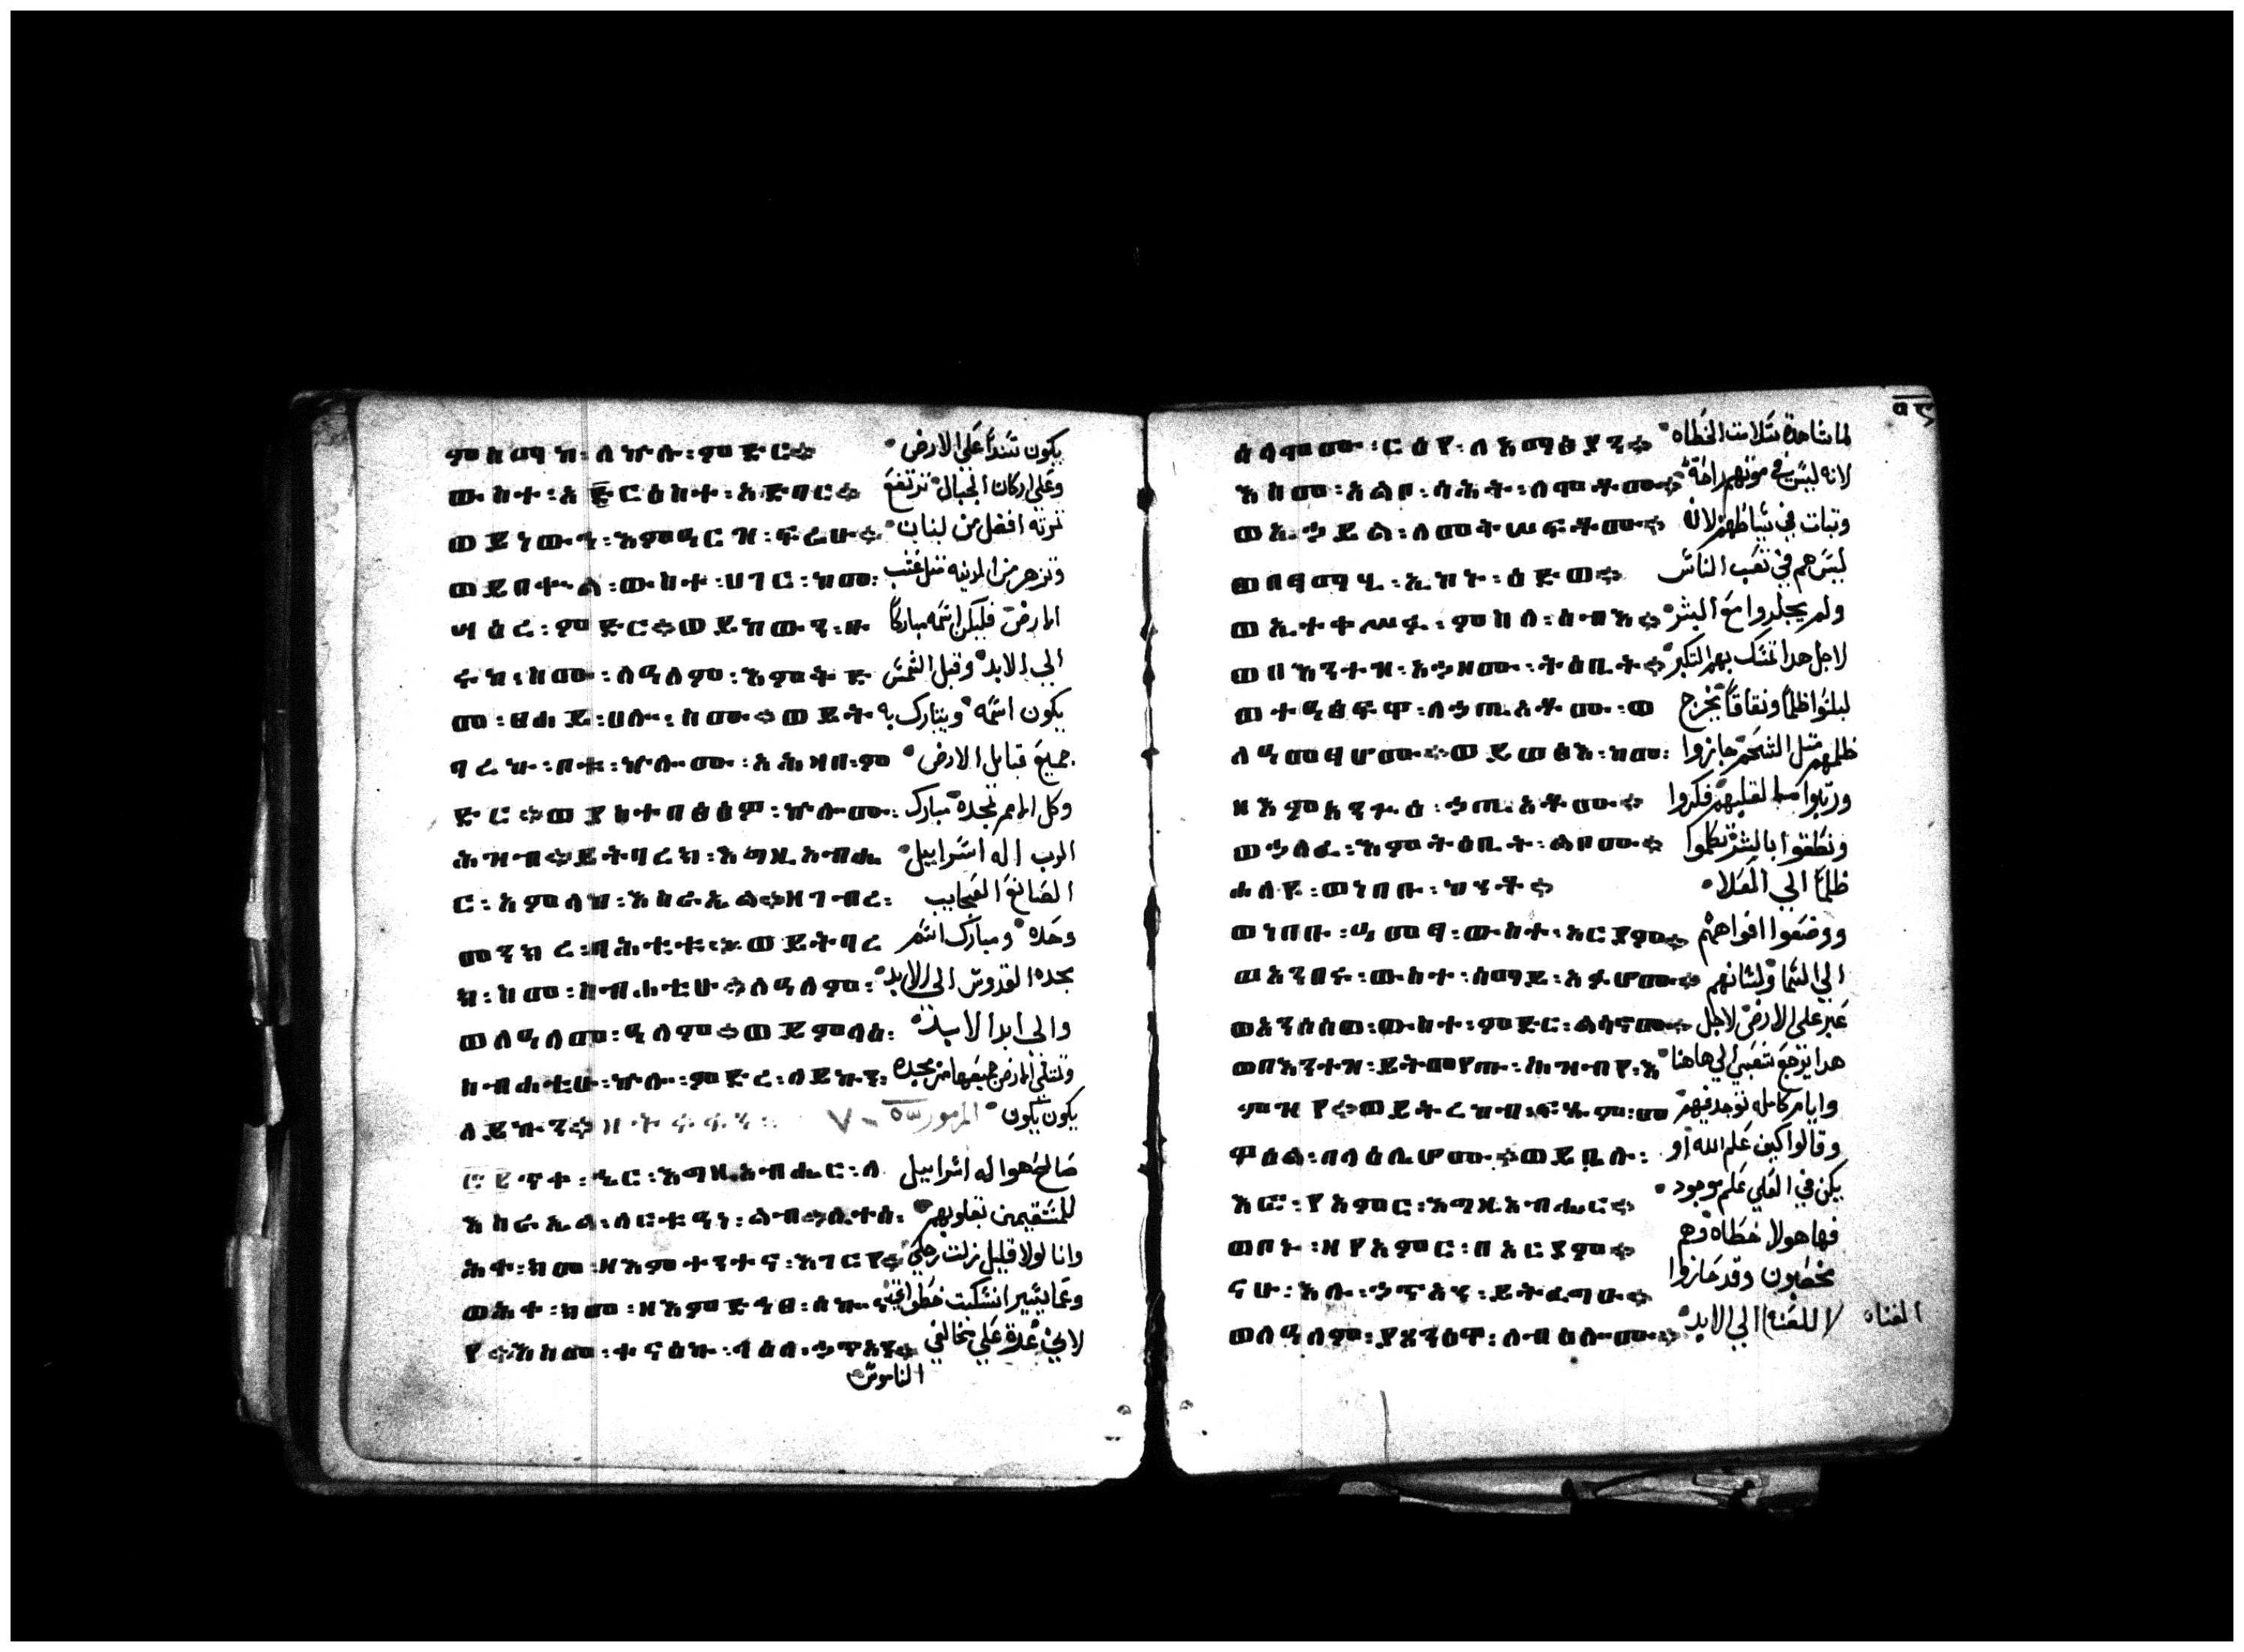 ምስማከ፡ለኵሉ፡ምድር። يكون تندا على الارض
ውስተ፡አድርዕስተ፡አድባር። وعلى اركان الجبال ترتفع
ወይነውኅ፡እምዓርዝ፡ፍሬሁ። ثمرته افضل من لبنان
ወይበቍል፡ውስተ፡ሀገር፡ከመ፡ وتزهر من المدينه مثل عشب
ሣዕረ፡ምድር።ወይከውን፡ቡ الارض فليكن اسمه مباركا
ሩከ፡ስሙ፡ለዓለም፡እምቅድ الى الابد وقبل الشمس
መ፡ፀሐይ፡ሀሎ፡ስሙ።ወይት يكون اسمه ويتبارك به
ባረኩ፡ቦቱ፡ኵሎሙ፡አሕዛበ፡ም جميع قبايل الارض
ድር።ወያስተበፅዕዎ፡ኵሎሙ፡ وكل الامم تمجده مبارك
ሕዝብ።ይትባረክ፡እግዚአብሔ الرب اله اسراييل
ር፡አምላከ፡እስራኤል።ዘገብረ፡ الصانع العجايب
መንክረ፡ባሕቲቱ።ወይትባረ وحده ومبارك اسم
ክ፡ስመ፡ስብሐቲሁ።ለዓለም፡ مجده القدوس الى الابد
ወለዓለመ፡ዓለም።ወይምላዕ፡ والى ابد الابد
ስብሐቲሁ፡ኵሎ፡ምድረ፡ለይኩን፡ وتمتلى الارض جميعها من مجده
ለይኩን። يكون يكون المزمور
ጥቀ፡ኄር፡እግዚአብሔር፡ለ صالح هو اله اسراييل
እስራኤል፡ለርቱዓነ፡ልብ።ሊተሰ፡ للمستقيمين بقلوبهم
ሕቀ፡ከመ፡ዘእምተንተና፡እገርየ። وانا لولا قليل زلت رجلي
ወሕቀ፡ከመ፡ዘእምድኅፀ፡ሰኰና وعما يسير انسكبت خطواتي
የ።እስመ፡ተናዕኩ፡ላዕለ፡ኃጥኣን። لاني غدة على مخالفي
الناموس
ሰላሞሙ፡ርእየ፡ለኃጥኣን። لما شاهدة سلامت الخطاه
እስመ፡አልቦ፡ስሕተ፡ለሞቶሙ። لانه ليس في موتهم راحة
ወኢኃይል፡ለመቅሠፍቶሙ። وثبات في سياطهم لان
ወበፃማሂ፡ኢኮኑ፡ዕድወ። ليس هم في تعب الناس
ወኢተቀሥፉ፡ምስለ፡ሰብእ። ولم يجلدوا مع البشر
ወበእንተዝ፡አኃዞሙ፡ትዕቢት። لاجل هدا تمسك بهم التكبر
ወተዓፅፍዋ፡ለኃጢአቶሙ፡ወ لبسوا ظلما ونفاقا يخرج
ለዓመፃሆሙ።ወይወፅእ፡ከመ፡ ظلمهم مثل الشحم جازوا
ዘእምአንጕዕ፡ኃጢአቶሙ። وربوا لقلبهم فكروا
ወኃለፉ፡እምትዕቢት፡ልቦሙ። ونطقوا بالشر تكلموا
ሐለዩ፡ወነበቡ፡ከንቶ። ظلما الى العلا
ወነበቡ፡ዓመፃ፡ውስተ፡አርያም። ووضعوا افواههم
ወአንበሩ፡ውስተ፡ሰማይ፡አፉሆሙ። الى السما ولسانهم
ወአንሶሰወ፡ውስተ፡ምድር፡ልሳኖሙ። عبر على الارض لاجل
ወበእንተዝ፡ይትመየጡ፡ሕዝብየ፡እ هدا يرجع شعبي الى هاهنا
ምዝየ።ወይትረከብ፡ፍጹም፡መ وايام كامله توجد فيهم
ዋዕል፡በላዕሌሆሙ።ወይቤሉ፡ وقالوا كيف علم الله او
እፎ፡የአምር፡እግዚአብሔር። يكن في العلي علم موجود
ወቦኑ፡ዘየአምር፡በአርያም። فها هولا خطاه وهم
ናሁ፡እሉ፡ኃጥኣን፡ይትፌግዑ። مخصبون وقد حازوا
ወለዓለም፡ያጸንዕዋ፡ለብዕሎሙ። الى الابد الغناه